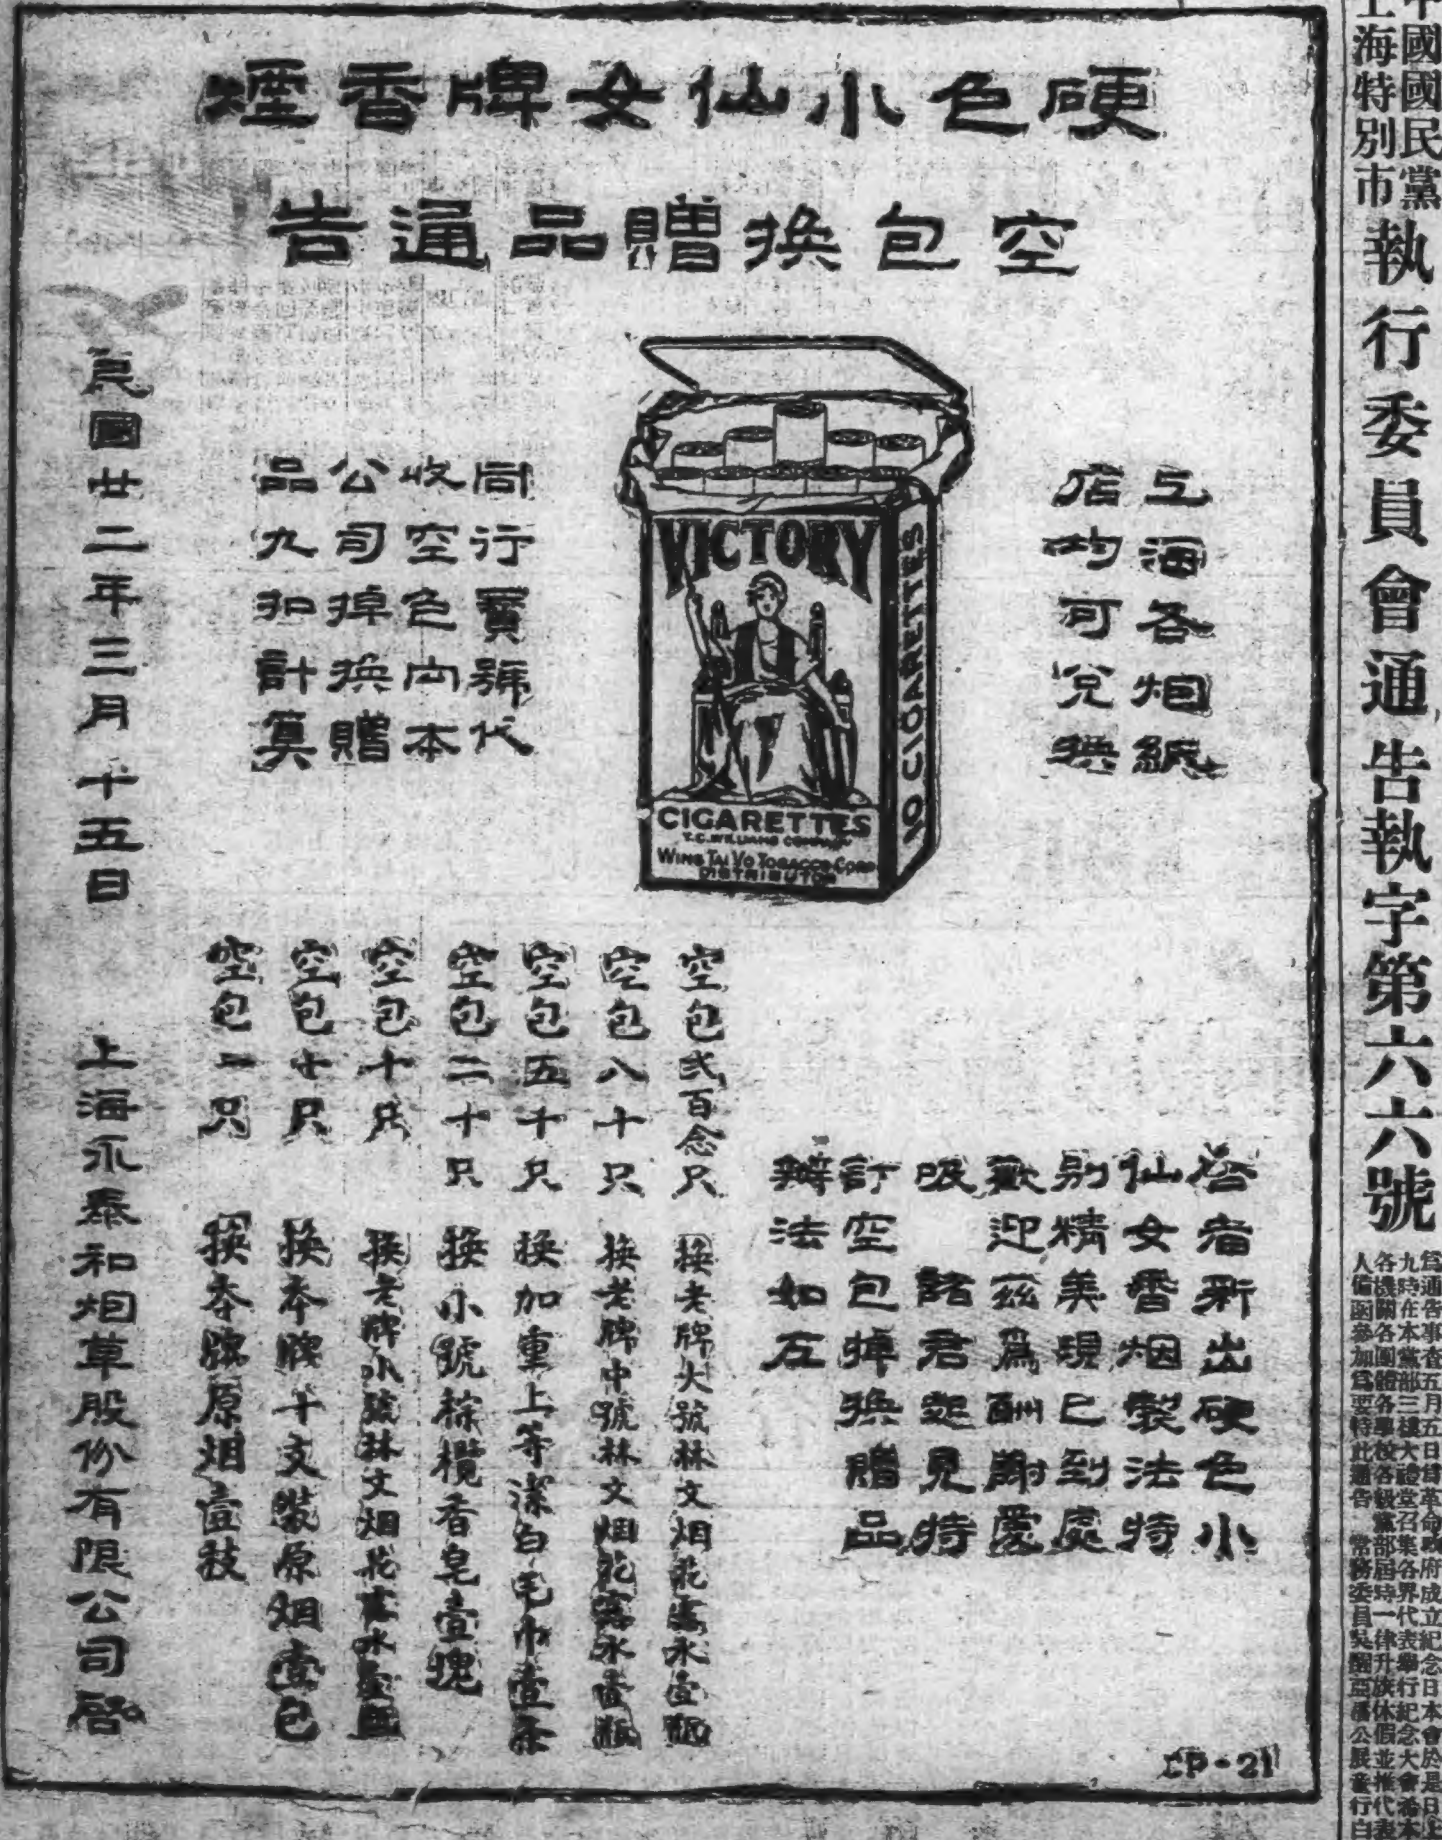 硬包小仙女牌香煙
空包换贈品通告
上海各烟紙
店均可兌換
VICTORY
CIGARETTES
T.C. WILLIAMS COMPANY
WING TAI VO TOBACCO CORP
DISTRIBUTOR
10 CIGARETTES
同行寶號代
收空包向本
公司掉换贈
品九扣計算
啓者新出硬包小
仙女香烟製法特
别精美現已到處
歡迎茲為酬謝愛
吸 諸君起見特
訂空包掉换贈品
辦法如左
空包弍百念只 换老牌大號林文烟花露水壹瓶
空包八十只 换老牌中號林文烟花露水壹瓶
空包五十只 换加重上等潔白毛巾壹条
空包二十只 换小號棕欖香皂壹塊
空包十只 换老牌小號林文烟花露水壹瓶
空包七只 换本牌十支裝原烟壹包
空包一只 换本牌原烟壹枝
民國廿二年三月十五日
上海永泰和烟草股份有限公司啓
CP-21
中國國民黨
上海特別市
執行委員會通告執字第六六號
爲通告事查五月五日爲革命政府成立紀念日本會於是日上
九時在本黨部三樓大禮堂召集各界代表舉行紀念大會希本
各機關各團體各學校各級黨部屆時一律升旗休假並推代表
人備函參加爲要特此通告 常務委員吳醒亞潘公展童行白